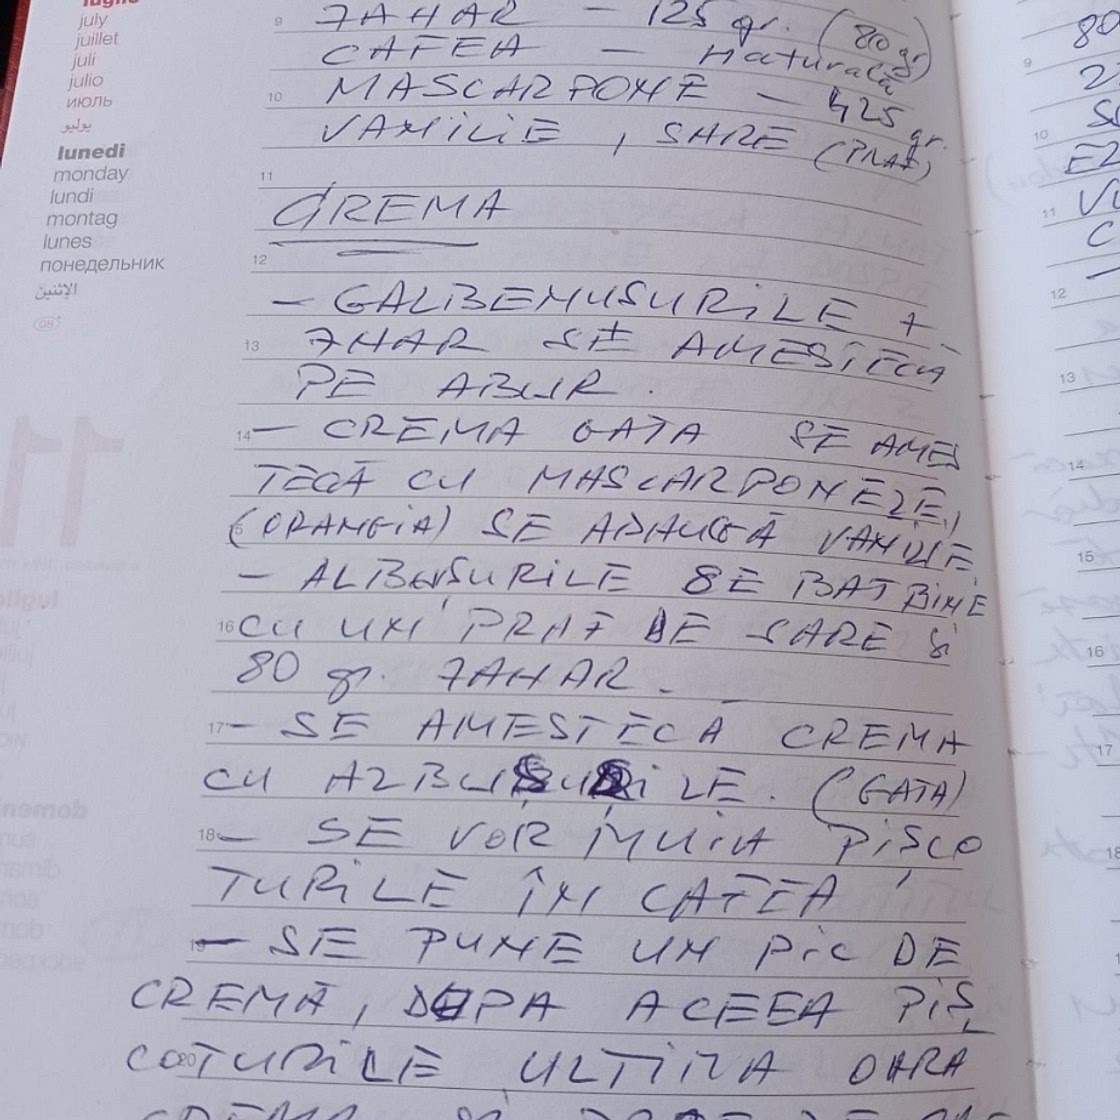 luglio
july
juillet
juli
julio
июль
يوليو
lunedì
monday
lundi
montag
lunes
понедельник
الإثنين
GB
9 ZAHAR - 125 gr. (80 gr)
CAFEA - naturală
10 MASCARPONE - 425 gr.
VANILIE, SARE (PRAF)
11
CREMA
12
- GALBENUSURILE +
13 ZHAR SE AMESTECA
PE ABUR.
14 - CREMA GATA SE AMES
TECĂ CU MASCARPONEZE,
(ORANGIA) SE ADAUGĂ VANILIE,
- ALBUSURILE SE BAT BINE
16 CU UN PRAF DE SARE SI
80 gr. ZAHAR.
17 - SE AMESTECĂ CREMA
CU ALBUȘURILE. (GATA)
18 - SE VOR MUIA PIȘCO
TURILE ÎN CAFEA
19 - SE PUNE UN PIC DE
CREMĂ, DUPA ACEEA PIȘ
20 COTURILE ULTIMA OARA
CREMA
80
9
10
11
12
13
14
15
16
17
18